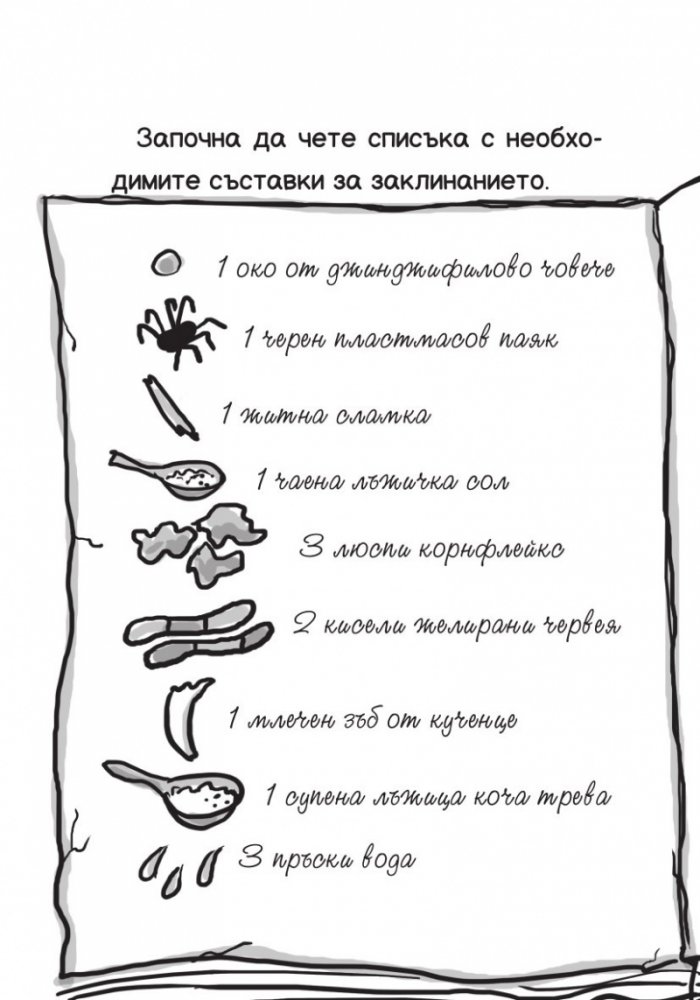 Започна да чете списъка с необхо-
димите съставки за заклинанието.
1 око от джинджифилово човече
1 черен пластмасов паяк
1 житна сламка
1 чаена лъжичка сол
3 люспи корнфлейкс
2 кисели желирани червея
1 млечен зъб от кученце
1 супена лъжица коча трева
3 пръски вода